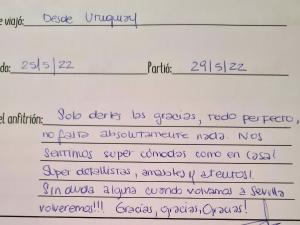 e viajó: Desde Uruguay
da: 25/5/22 Partió: 29/5/22
el anfitrión: Solo darles las gracias, todo perfecto,
no falta absolutamente nada. Nos
sentimos super cómodos como en casa!
Super detallistas, amables y atentos!
Sin duda alguna cuando volvamos a Sevilla
volveremos!!! Gracias, gracias, Gracias!